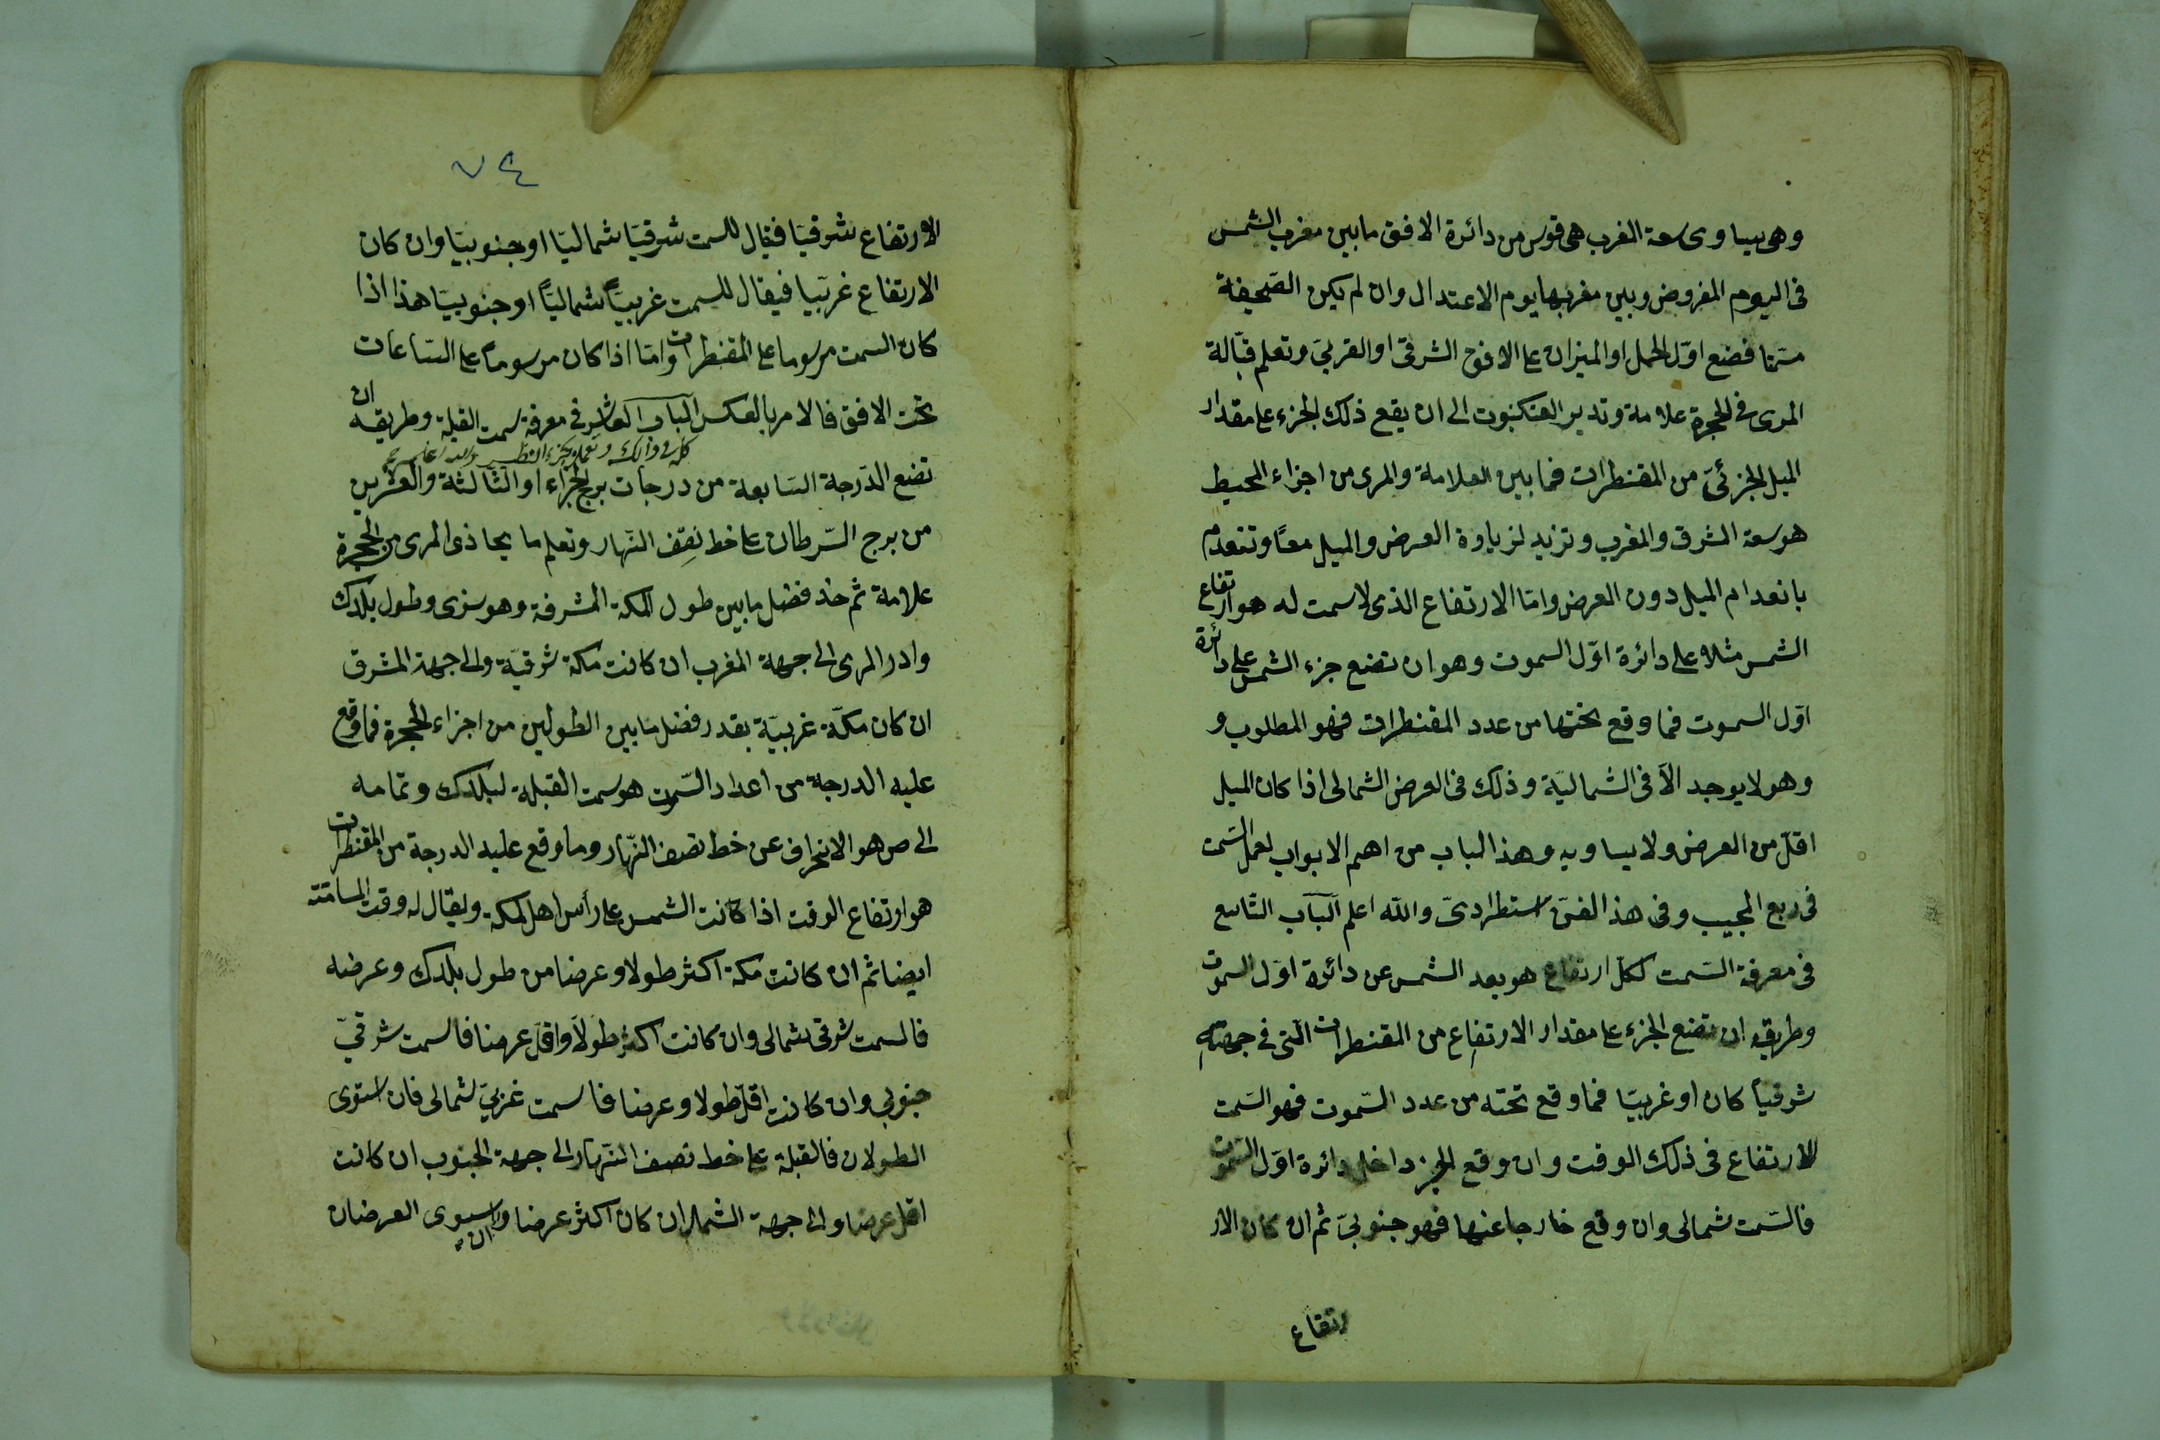 وهى يساوى سعة المغرب هى قوس من دائرة الافق مابين مغرب الشمس
فى اليوم المفروض وبين مغربها يوم الاعتدال وان لم يكن الصحيفة
فضع اوّل الحمل او الميزان على الافق الشرقى او الغربىّ وتعلم قبالة
المرى فى الحجرة علامة وتدير العنكبوت الى ان يقع ذلك الجزء على مقدار
الميل الجزئىّ من المقنطرات فما بين العلامة والمرى من اجزاء المحيط
هو سعة المشرق والمغرب وتزيد لزيادة العرض والميل معًا وتنعدم
بانعدام الميل دون العرض وامّا الارتفاع الذى لا سمت له هو ارتفاع
الشمس مثلا على دائرة اوّل السموت وهو ان تضع جزء الشمس على دائرة
اوّل السموت فما وقع تحتها من عدد المقنطرات فهو المطلوب و
وهو لا يوجد الاّ فى الشماليّة وذلك فى العرض الشمالى اذا كان الميل
اقلّ من العرض ولا يساويه وهذا الباب من اهم الابواب لعمل السّمت
فى ربع المجيب وفى هذا الفنّ استطرادىّ والله اعلم الباب التّاسع
فى معرفة السّمت لكلّ ارتفاع هو بعد الشمس عن دائرة اوّل السموت
وطريقه ان تضع الجزء على مقدار الارتفاع من المقنطرات الّتى فى جهته
شرقيّاً كان او غربيّا فما وقع تحته من عدد السّموت فهو السّمت
للارتفاع فى ذلك الوقت وان وقع الجزء داخل دائرة اوّل السّموت
فالسّمت شمالى وان وقع خارجا عنها فهو جنوبىّ ثم ان كان الار
رتفاع
٧٤
الارتفاع شرقيّا فيقال للسمت شرقيّا شماليّا او جنوبيّا وان كان
الارتفاع غربّيا فيقال للسمت غربيّاً شماليّاً او جنوبيّا هذا اذا
كان السمت مرسوما على المقنطرات وامّا اذا كان مرسوماً على السّاعات
تحت الافق فالامر بالعكس الباب العاشر فى معرفة سمت القبلة وطريقه ان
تضع الدّرجة السّابعة من درجات برج الجوزاء او الثّالثة والعشرين
من برج السّرطان على خط نصف النّهار وتعلم ما يحاذى المرى من الحجرة
علامة ثم خذ فضل مابين طول المكة المشرفة وهو سزى وطول بلدك
وادر المرى الى جهة المغرب ان كانت مكة شرقيّة والى جهة المشرق
ان كان مكّة غربيّة بقدر فضل مابين الطولين من اجزاء الحجرة فما وقع
عليه الدرجة من اعداد السّموت هو سمت القبلة لبلدك وتمامه
الى ص هو الانحراف عن خط نصف النّهار وما وقع عليه الدرجة من المقنطرات
هو ارتفاع الوقت اذا كانت الشمس على رأس اهل مكة ويقال له وقت المسامتة
ايضا ثم ان كانت مكة اكثر طولا وعرضا من طول بلدك وعرضه
فالسمت شرقى شمالى وان كانت اكثر طولاً واقلّ عرضا فالسمت شرقىّ
جنوبى وان كانت اقلّ طولا وعرضا فالسمت غربىّ شمالى فان استوى
الطولان فالقبلة على خط نصف النّهار الى جهة الجنوب ان كانت
اقل عرضا والى جهة الشمال ان كان اكثر عرضا وان استوى العرضان